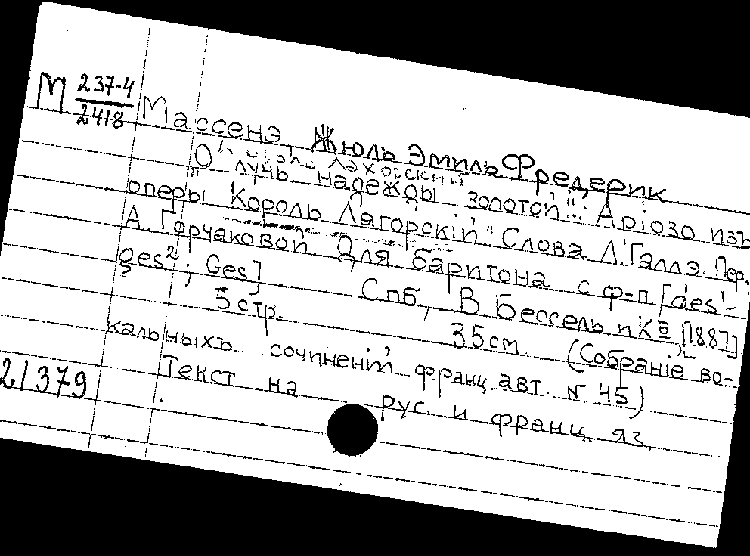 М 237-4/2418
Массенэ Жюль Эмиль Фредерик
"О лучъ надежды золотой". Аріозо изъ
оперы "Король Лагорскій". Слова Л. Галлэ. Пер.
А. Горчаковой. Для баритона с ф-п [des'-
ges²; Ges]
Спб, В. Бессель и Кº [1887]
5 стр. 35 см. (Собраніе во-
кальныхъ сочиненій франц. авт. № 45)
Текст на рус. и франц. яз.
21379